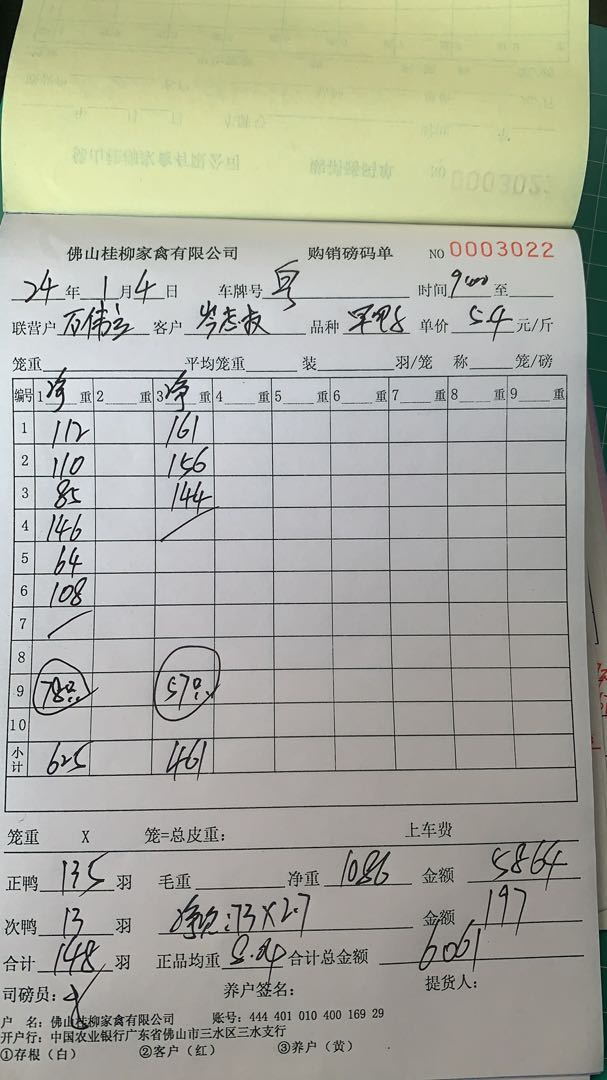 佛山桂柳家禽有限公司 购销磅码单 NO 0003022
24 年 1 月 4 日 车牌号 粤 时间 9:00 至
联营户 客户 品种 单价 5.4 元/斤
笼重 平均笼重 装 羽/笼 称 笼/磅
编号 1 净 重 2 重 3 净 重 4 重 5 重 6 重 7 重 8 重 9 重
1 112 161
2 110 156
3 85 144
4 146
5 64
6 108
7
8
9 78只 57只
10
小计 625 461
笼重 X 笼=总皮重: 上车费
正鸭 135 羽 毛重 净重 1086 金额 5864
次鸭 13 羽 净次:73×2.7 金额 197
合计 148 羽 正品均重 8.04 合计总金额 6061
司磅员: 养户签名: 提货人:
户 名:佛山桂柳家禽有限公司 账号:444 401 010 400 169 29
开户行:中国农业银行广东省佛山市三水区三水支行
①存根(白) ②客户(红) ③养户(黄)